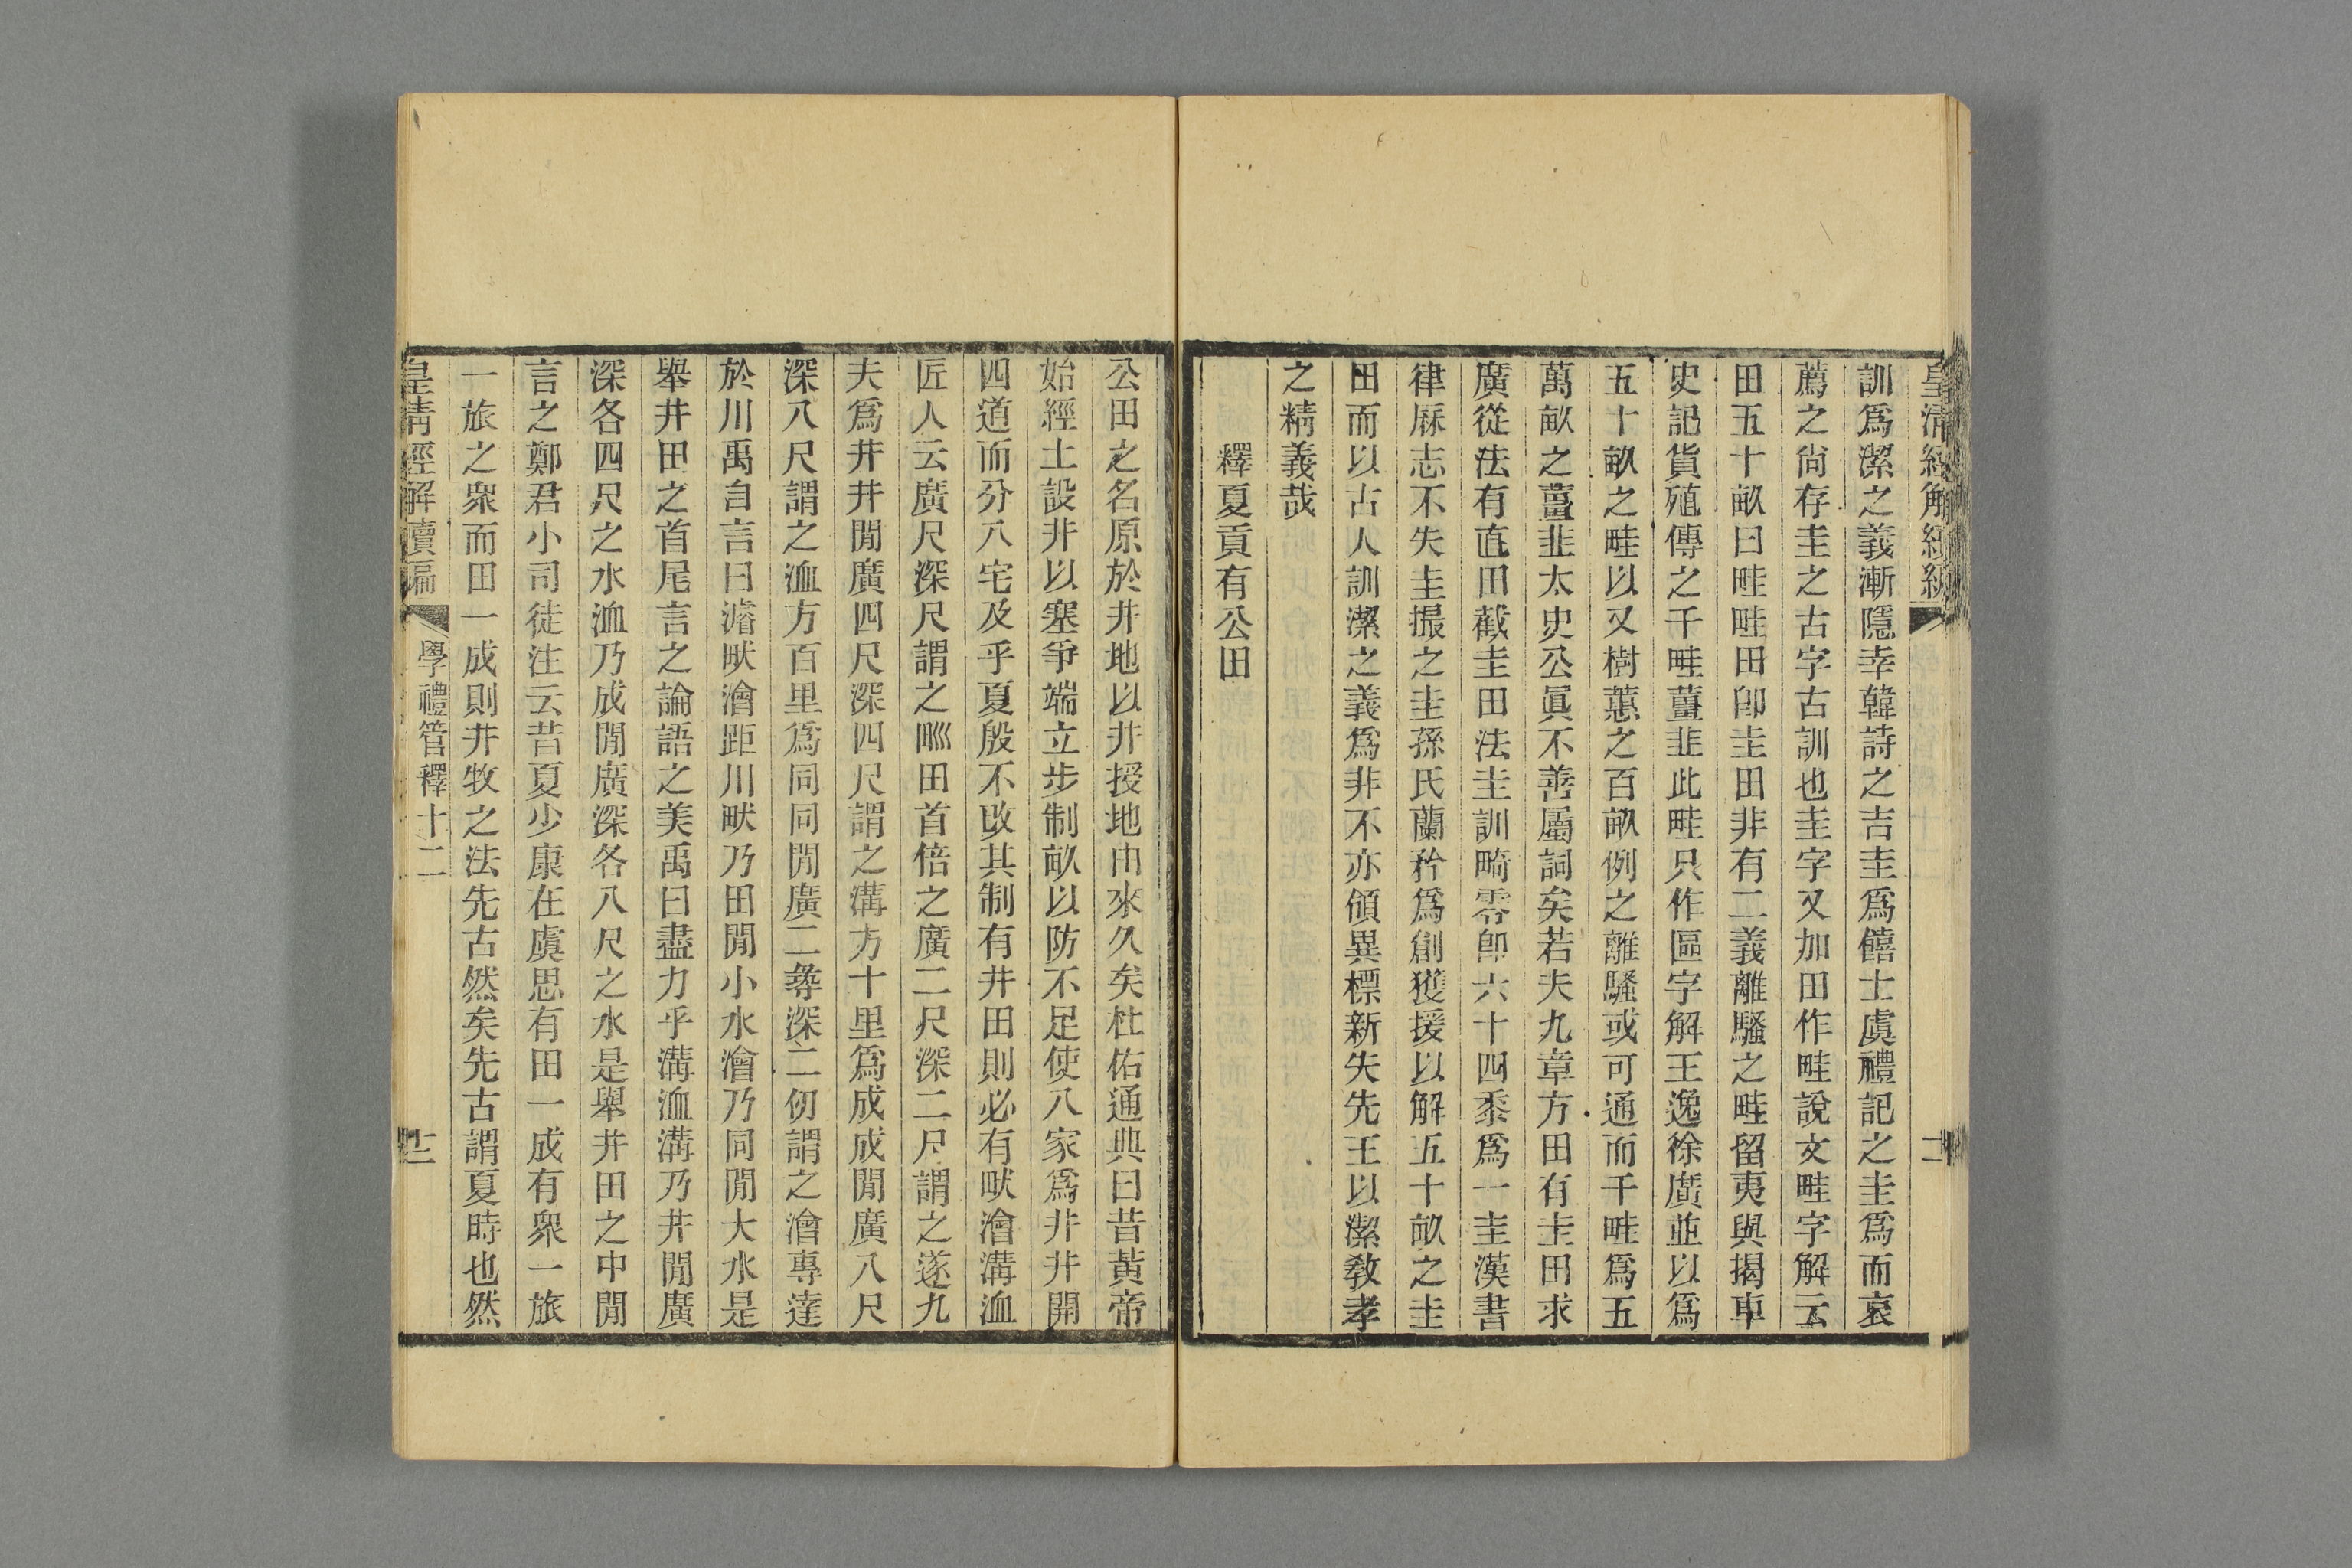 皇清經解續編
訓爲潔之義漸隱幸韓詩之吉圭爲僖士虞禮記之圭爲而哀
薦之尙存圭之古字古訓也圭字又加田作畦說文畦字解云
田五十畝曰畦畦田卽圭田非有二義離騷之畦留夷與揭車
史記貨殖傳之千畦薑韭此畦只作區字解王逸徐廣並以爲
五十畝之畦以又樹蕙之百畝例之離騷或可通而千畦爲五
萬畝之薑韭太史公眞不善屬詞矣若夫九章方田有圭田求
廣從法有直田截圭田法圭訓畸零卽六十四黍爲一圭漢書
律厤志不失圭撮之圭孫氏蘭矜爲創獲援以解五十畝之圭
田而以古人訓潔之義爲非不亦領異標新失先王以潔敎孝
之精義哉
釋夏貢有公田
公田之名原於井地以井授地由來久矣杜佑通典曰昔黃帝
始經土設井以塞爭端立步制畝以防不足使八家爲井井開
四道而分八宅及乎夏殷不改其制有井田則必有畎澮溝洫
匠人云廣尺深尺謂之𤰕田首倍之廣二尺深二尺謂之遂九
夫爲井井閒廣四尺深四尺謂之溝方十里爲成成閒廣八尺
深八尺謂之洫方百里爲同同閒廣二尋深二仞謂之澮專達
於川禹自言曰濬畎澮距川畎乃田閒小水澮乃同閒大水是
舉井田之首尾言之論語之美禹曰盡力乎溝洫溝乃井閒廣
深各四尺之水洫乃成閒廣深各八尺之水是舉井田之中閒
言之鄭君小司徒注云昔夏少康在虞思有田一成有衆一旅
一旅之衆而田一成則井牧之法先古然矣先古謂夏時也然
皇清經解續編 學禮管釋十二 十二